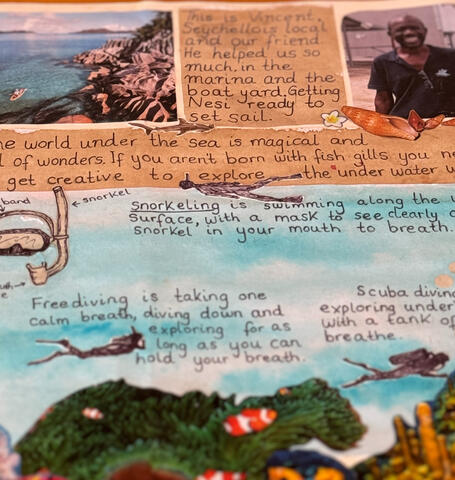 This is Vincent,
Seychellois local
and our friend.
He helped us so
much, in the
marina and the
boat yard, Getting
Nesi ready to
set sail.
he world under the sea is magical and
l of wonders. If you aren't born with fish gills you ne
get creative to explore the under water w
band
snorkel
Snorkeling is swimming along the
surface, with a mask to see clearly
snorkel in your mouth to breath.
Freediving is taking one
calm breath, diving down and
exploring for as
long as you can
hold your breath.
Scuba diving
exploring under
with a tank of
breathe.